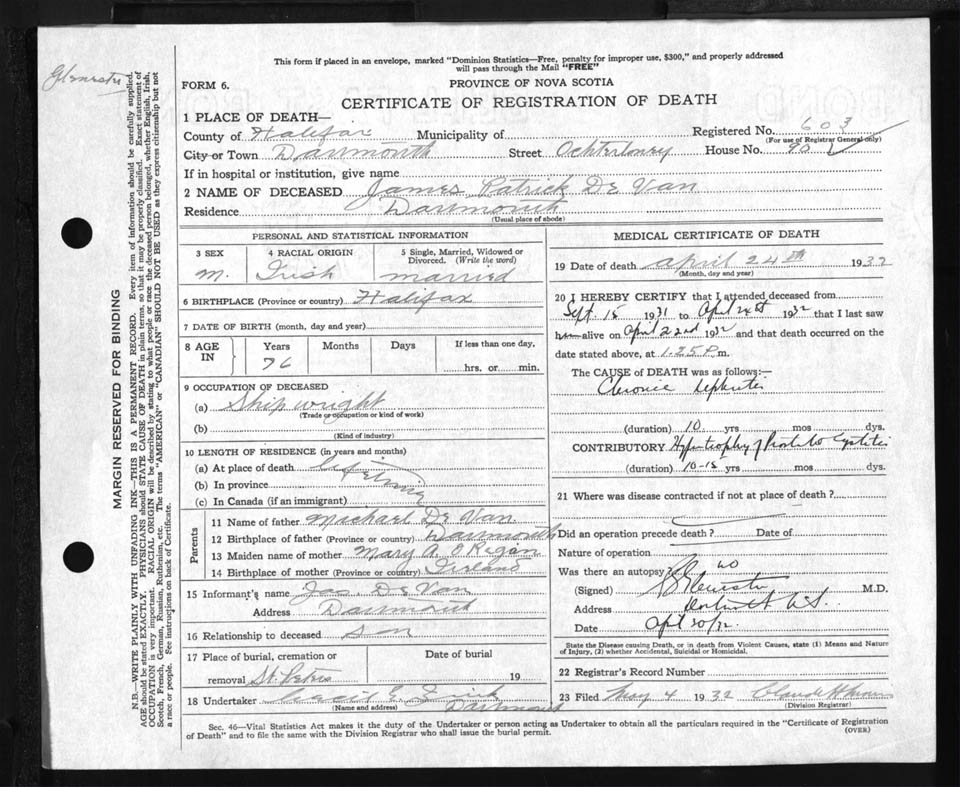 This form if placed in an envelope, marked "Dominion Statistics—Free, penalty for improper use, $300," and properly addressed
will pass through the Mail "FREE"
FORM 6.
PROVINCE OF NOVA SCOTIA
CERTIFICATE OF REGISTRATION OF DEATH
1 PLACE OF DEATH—
Registered No. 603
(For use of Registrar General only)
County of Halifax Municipality of
City or Town Dartmouth Street Ochterloney House No. 90
If in hospital or institution, give name
2 NAME OF DECEASED James Patrick De Van
Residence Dartmouth
(Usual place of abode)
PERSONAL AND STATISTICAL INFORMATION
3 SEX 4 RACIAL ORIGIN 5 Single, Married, Widowed or
Divorced. (Write the word)
M. Irish married
6 BIRTHPLACE (Province or country) Halifax
7 DATE OF BIRTH (month, day and year)
8 AGE IN Years Months Days If less than one day,
76 hrs. or min.
9 OCCUPATION OF DECEASED
(a) Ship wright
(Trade or occupation or kind of work)
(b)
(Kind of industry)
10 LENGTH OF RESIDENCE (in years and months)
(a) At place of death Lifetime
(b) In province
(c) In Canada (if an immigrant)
Parents
11 Name of father Michael De Van
12 Birthplace of father (Province or country) Dartmouth
13 Maiden name of mother Mary A. O Regan
14 Birthplace of mother (Province or country) Ireland
15 Informant's name Jas. De Van
Address Dartmouth
16 Relationship to deceased son
17 Place of burial, cremation or Date of burial
removal St. Peters 19
18 Undertaker Cecil E.
Dartmouth
(Name and address)
MEDICAL CERTIFICATE OF DEATH
19 Date of death April 24th 1932
(Month, day and year)
20 I HEREBY CERTIFY that I attended deceased from
Sept. 15 1931 to April 24th 1932 that I last saw
him alive on April 22nd 1932 and that death occurred on the
date stated above, at 1.25 P.m.
The CAUSE of DEATH was as follows:—
Chronic Nephritis
(duration) 10 yrs mos dys.
CONTRIBUTORY Hypertrophy of Prostate Cystitis
(duration) 10-15 yrs mos dys.
21 Where was disease contracted if not at place of death?
Did an operation precede death? Date of
Nature of operation
Was there an autopsy? no
(Signed) M.D.
Address Dartmouth N.S.
Date April 30/32
State the Disease causing Death, or in death from Violent Causes, state (1) Means and Nature
of Injury, (2) whether Accidental, Suicidal or Homicidal.
22 Registrar's Record Number
23 Filed May 4 1932 Claude H
(Division Registrar)
Sec. 46—Vital Statistics Act makes it the duty of the Undertaker or person acting as Undertaker to obtain all the particulars required in the "Certificate of Registration
of Death" and to file the same with the Division Registrar who shall issue the burial permit.
(OVER)
MARGIN RESERVED FOR BINDING
N.B.—WRITE PLAINLY WITH UNFADING INK—THIS IS A PERMANENT RECORD. Every item of information should be carefully supplied.
AGE should be stated EXACTLY. PHYSICIANS should STATE CAUSE OF DEATH in plain terms, so that it may be properly classified. Exact statement of
OCCUPATION is very important. RACIAL ORIGIN will be described by stating to what people or race the deceased person belonged, whether English, Irish,
Scotch, French, German, Russian, Ruthenian, etc. The terms "AMERICAN" or "CANADIAN" SHOULD NOT BE USED as they express citizenship but not
a race or people. See instructions on back of Certificate.